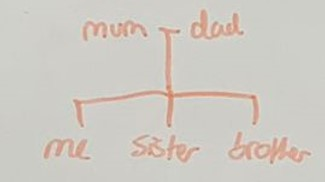 mum dad
me sister brother